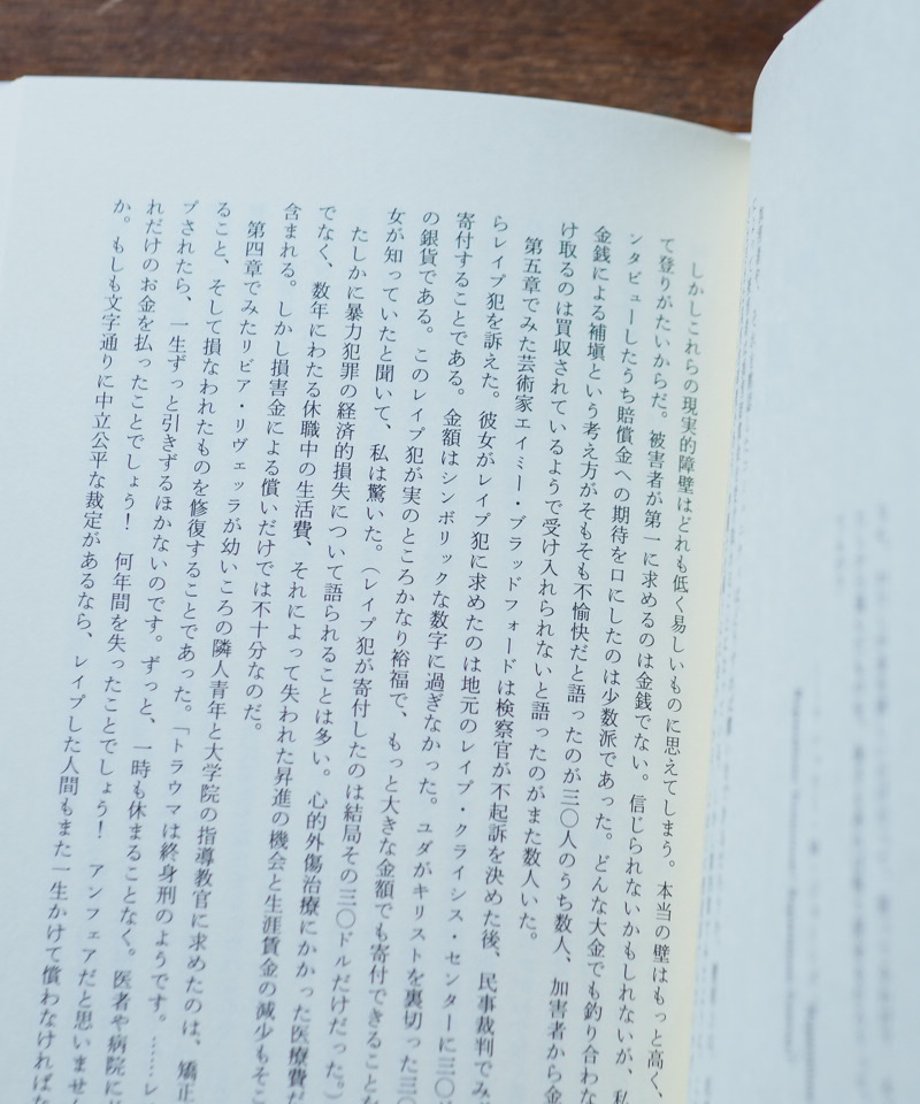 しかしこれらの現実的障壁はどれも低く易しいものに思えてしまう。本当の壁はもっと高く、
て登りがたいからだ。被害者が第一に求めるのは金銭でない。信じられないかもしれないが、私
ンタビューしたうち賠償金への期待を口にしたのは少数派であった。どんな大金でも釣り合わな
金銭による補塡という考え方がそもそも不愉快だと語ったのが三〇人のうち数人、加害者から金
け取るのは買収されているようで受け入れられないと語ったのがまた数人いた。
第五章でみた芸術家エイミー・ブラッドフォードは検察官が不起訴を決めた後、民事裁判でみ
らレイプ犯を訴えた。彼女がレイプ犯に求めたのは地元のレイプ・クライシス・センターに三〇
寄付することである。金額はシンボリックな数字に過ぎなかった。ユダがキリストを裏切った三〇
の銀貨である。このレイプ犯が実のところかなり裕福で、もっと大きな金額でも寄付できること
女が知っていたと聞いて、私は驚いた。（レイプ犯が寄付したのは結局その三〇ドルだけだった。）
たしかに暴力犯罪の経済的損失について語られることは多い。心的外傷治療にかかった医療費だ
でなく、数年にわたる休職中の生活費、それによって失われた昇進の機会と生涯賃金の減少もそこ
含まれる。しかし損害金による償いだけでは不十分なのだ。
第四章でみたリビア・リヴェッラが幼いころの隣人青年と大学院の指導教官に求めたのは、矯正
ること、そして損なわれたものを修復することであった。「トラウマは終身刑のようです。……レ
プされたら、一生ずっと引きずるほかないのです。ずっと、一時も休まることなく。医者や病院に
れだけのお金を払ったことでしょう！　何年間を失ったことでしょう！　アンフェアだと思いません
か。もしも文字通りに中立公平な裁定があるなら、レイプした人間もまた一生かけて償わなければな